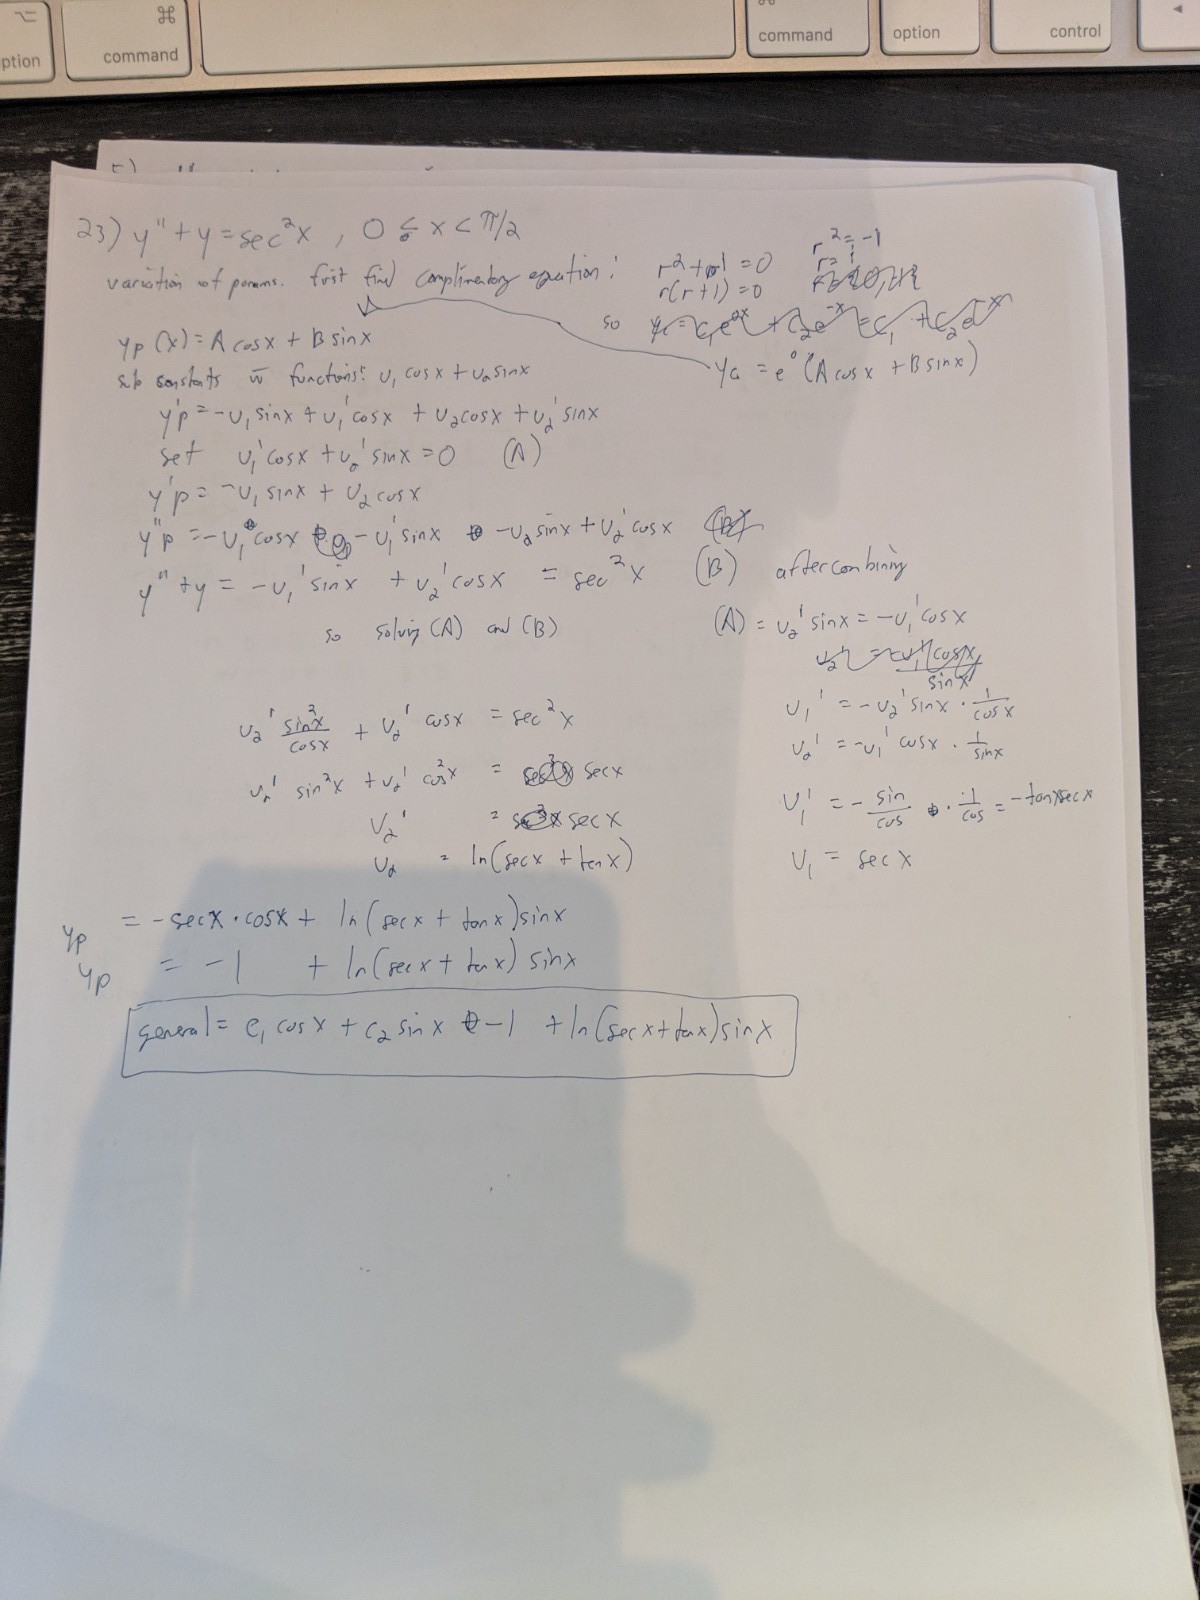 ⌥ ⌘ ⌘
ption command command option control
5)
23) y" + y = sec²x , 0 ≤ x < π/2
r² = -1
variation of params. first find complimentary equation: r² + 1 = 0 r = i
r(r+1) = 0
so
yp(x) = A cosx + B sinx
yc = e⁰ (A cosx + B sinx)
sub constants w functions: u₁ cosx + u₂ sinx
y'p = -u₁ sinx + u₁' cosx + u₂ cosx + u₂' sinx
set u₁' cosx + u₂' sinx = 0 (A)
y'p = -u₁ sinx + u₂ cosx
y"p = -u₁ cosx - u₁' sinx - u₂ sinx + u₂' cosx
y" + y = -u₁' sinx + u₂' cosx = sec²x (B) after combining
so solving (A) and (B) (A) = u₂' sinx = -u₁' cosx
u₂' sin²x/cosx + u₂' cosx = sec²x
u₁' = -u₂' sinx · 1/cosx
u₂' = -u₁' cosx · 1/sinx
u₂' sin²x + u₂' cos²x = secx
u₂' = secx
u₁' = - sin/cos · 1/cos = -tanxsecx
u₂ = ln(secx + tanx)
u₁ = secx
yp = -secx · cosx + ln(secx + tanx)sinx
yp = -1 + ln(secx + tanx) sinx
general = c₁ cosx + c₂ sinx -1 + ln(secx + tanx)sinx